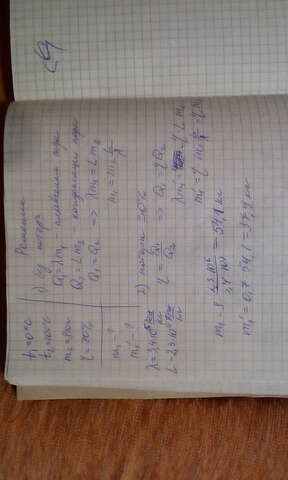 Решение
t₁=0°C
t₂=100°C
m₂=8кг
η=70%
m₁-?
m₁'-?
λ=3,4·10⁵ Дж/кг
L=2,3·10⁶ Дж/кг
1) без потерь
Q₁=λm₁ плавление льда
Q₂=Lm₂ конденсация пара
Q₁=Q₂ => λm₁=Lm₂
m₁=m₂ L/λ
2) потери 30%
η=Q₁/Q₂ => Q₁=ηQ₂
λm₁=ηLm₂
m₁'=η m₂ L/λ=ηm₁
m₁=8 2,3·10⁶/3,4·10⁵=54,1 кг
m₁'=0,7·54,1=37,9 кг